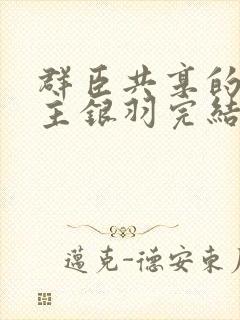 群臣共享的
王银羽完结
邁克-德安東尼